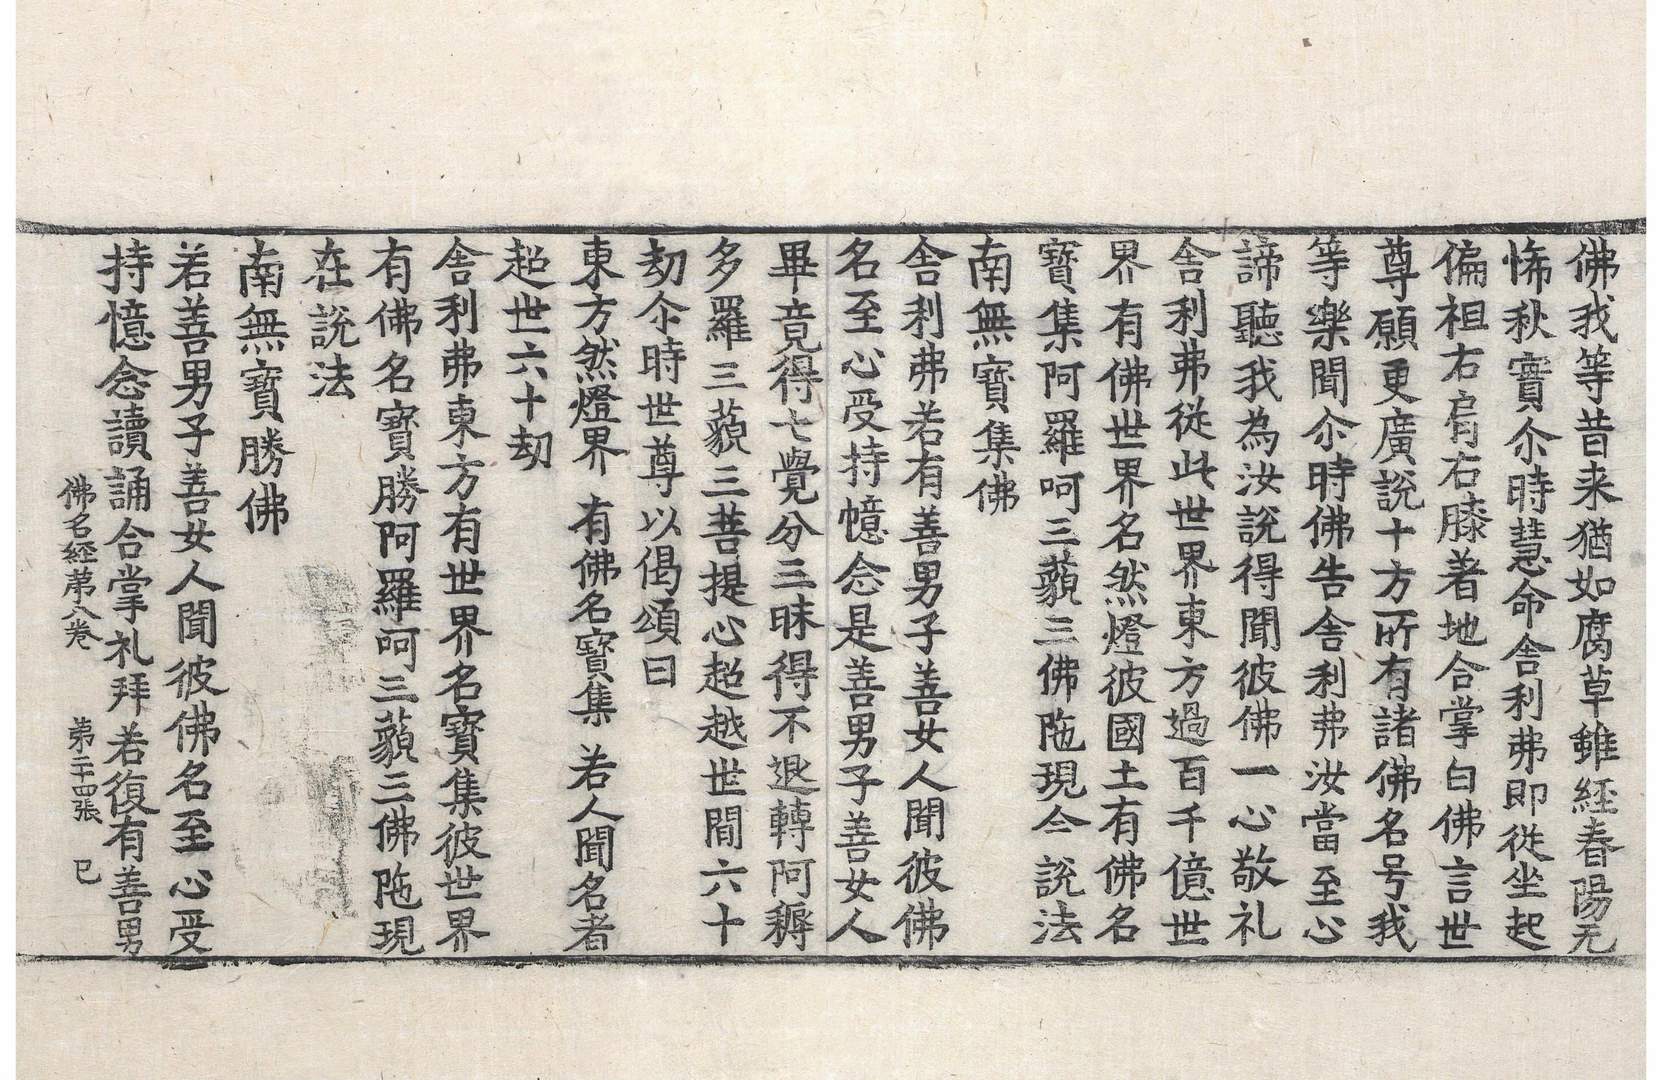 佛我等昔来猶如腐草雖經春陽无
悕秋實尒時慧命舎利弗即從坐起
偏袒右肩右膝著地合掌白佛言世
尊願更廣說十方所有諸佛名号我
等樂聞尒時佛告舎利弗汝當至心
諦聽我為汝說得聞彼佛一心敬礼
舎利弗從此世界東方過百千億世
界有佛世界名然燈彼國土有佛名
寳集阿羅呵三藐三佛陁現仐說法
南無寳集佛
舎利弗若有善男子善女人聞彼佛
名至心受持憶念是善男子善女人
畢竟得七覺分三昧得不退轉阿耨
多羅三藐三菩提心超越世間六十
刼尒時世尊以偈頌曰
東方然燈界 有佛名寳集 若人聞名者
超世六十刼
舎利弗東方有世界名寳集彼世界
有佛名寳勝阿羅呵三藐三佛陁現
在說法
南無寳勝佛
若善男子善女人聞彼佛名至心受
持憶念讀誦合掌礼拜若復有善男
佛名經第八卷 第二十四張 巳